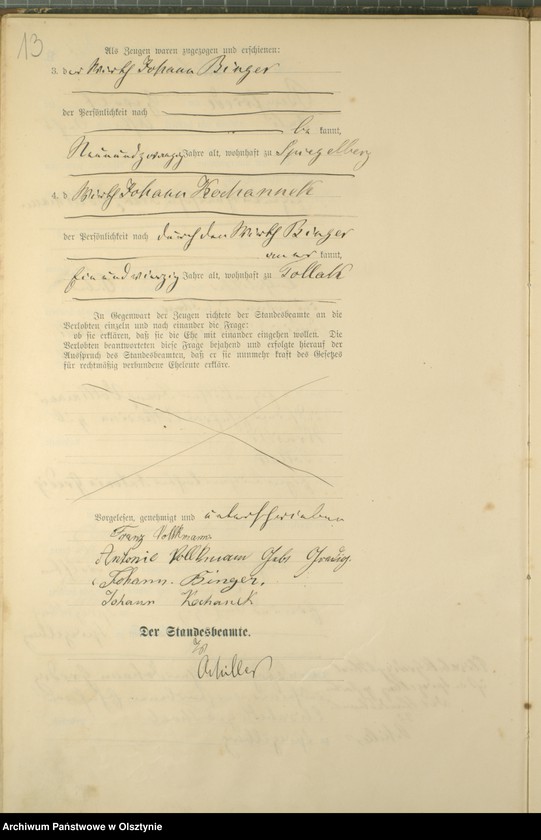 13
Als Zeugen waren zugezogen und erschienen:
3. der Wirth Johann Binger
der Persönlichkeit nach
be kannt,
Neunundzwanzig Jahre alt, wohnhaft zu Spiegelberg
4. d Wirth Johann Kochanneck
der Persönlichkeit nach durch den Wirth Binger
aner kannt,
Einundvierzig Jahre alt, wohnhaft zu Tollack
In Gegenwart der Zeugen richtete der Standesbeamte an die
Verlobten einzeln und nach einander die Frage:
ob sie erklären, daß sie die Ehe mit einander eingehen wollen. Die
Verlobten beantworteten diese Frage bejahend und erfolgte hierauf der
Ausspruch des Standesbeamten, daß er sie nunmehr kraft des Gesetzes
für rechtmäßig verbundene Eheleute erkläre.
Vorgelesen, genehmigt und unterschrieben
Franz Vollkmann
Antonie Vollkmann Geb
Johann Binger.
Johann Kochaneck
Der Standesbeamte.
Achilles
Archiwum Państwowe w Olsztynie